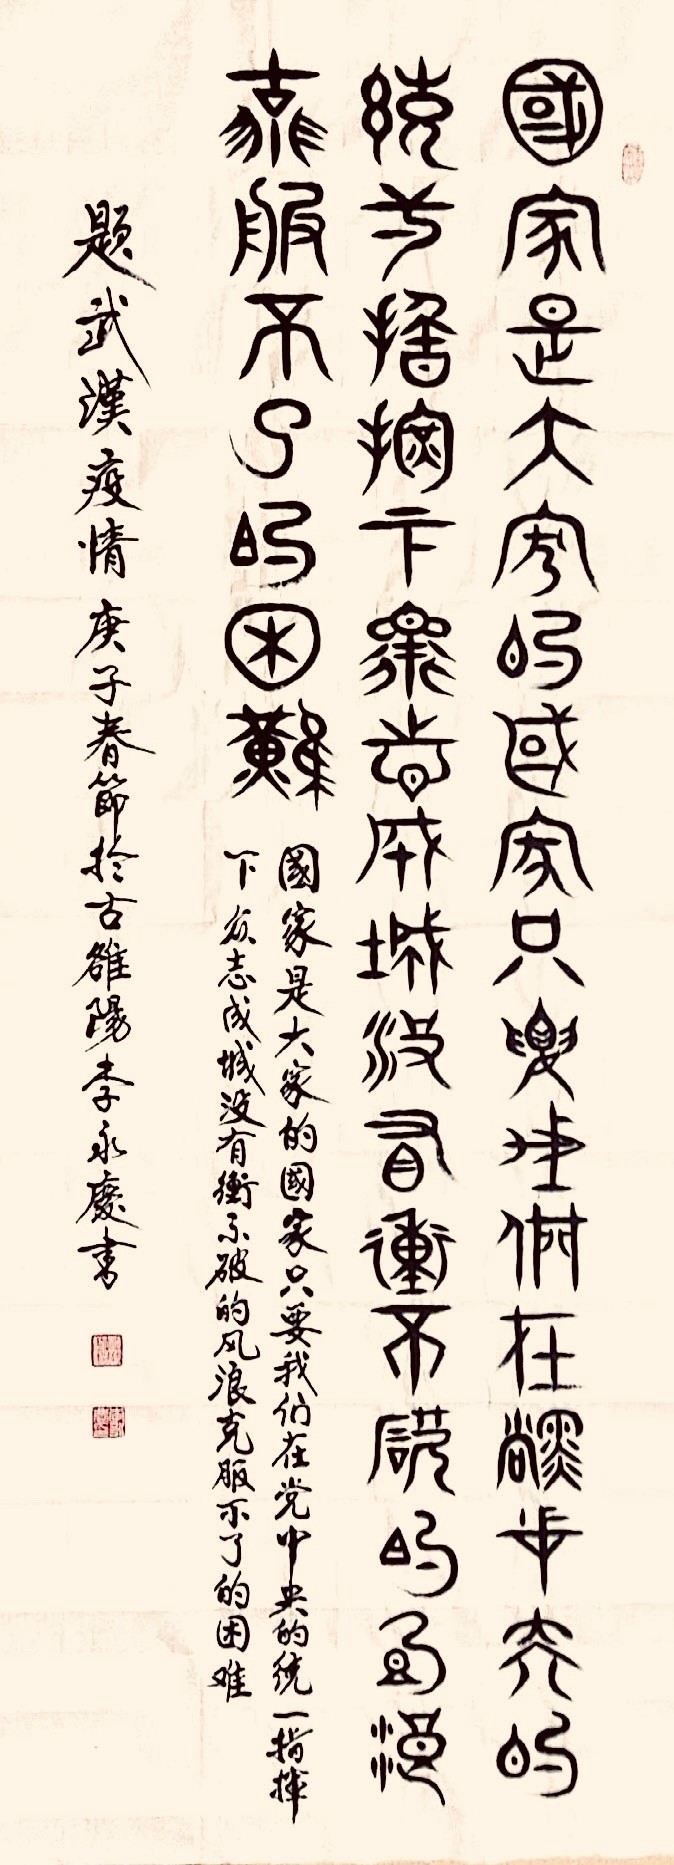 國家是大家的國家只要我们在黨中央的
統一指揮下眾志成城没有衝不破的風浪
克服不了的困難
國家是大家的國家只要我们在党中央的统一指挥
下众志成城没有衝不破的风浪克服不了的困难
題武漢疫情庚子春節於古雒陽李永慶書